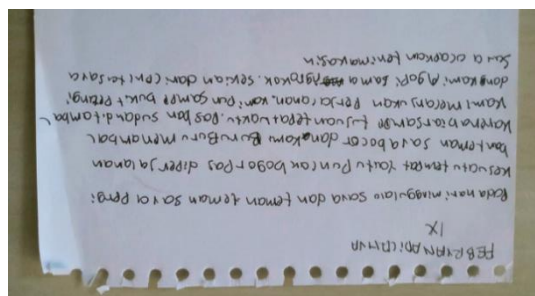 FEBRYAN
IX
Pada hari minggu lalu saya dan teman teman saya pergi
kesuatu tempat yaitu Puncak bogor Pas diperjalanan
ban teman saya bocor dan kami Buru Buru menambal
karena biar sampe tujuan tepat waktu. Pas ban sudah ditambal
kami melanjutkan Perjalanan. kami pun sampe bukit Pelangi
dan kami ngopi sama ngrokok. sekian dari cerita saya
saya ucapkan terimakasih